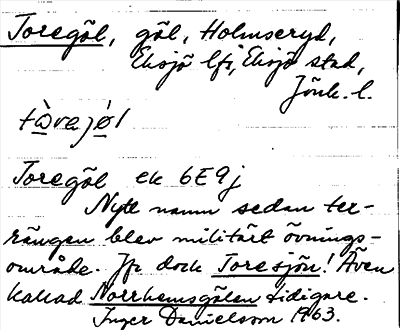 Toregöl, göl, Holmseryd,
Eksjö lfs, Eksjö stad,
Jönk. l.
tò̱vajǿ̱l
Toregöl ek 6E9j
Nytt namn sedan ter-
rängen blev militärt övnings-
område. Jfr dock Toresjön! Även
kallad Norrhemsgölen tidigare.
Inger Danielsson 1963.